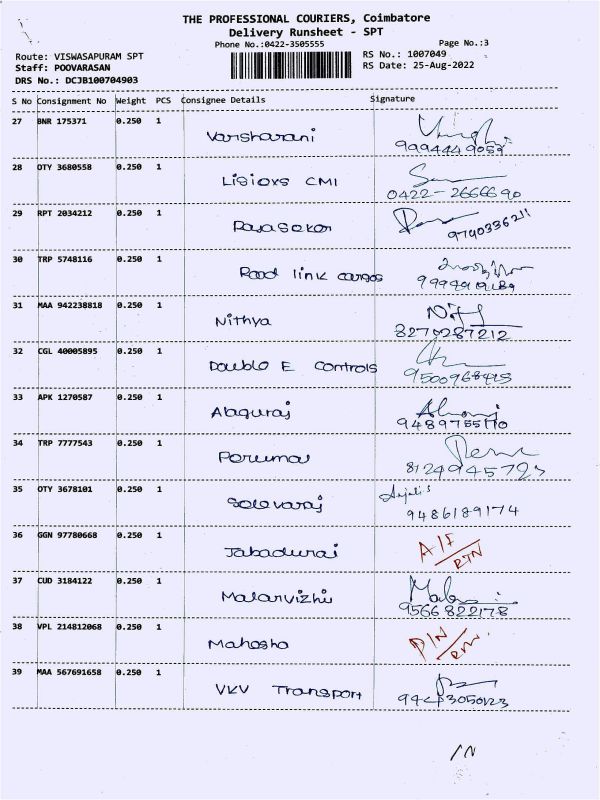 THE PROFESSIONAL COURIERS, Coimbatore
Delivery Runsheet - SPT
Phone No.:0422-3505555 Page No.:3
Route: VISWASAPURAM SPT RS No.: 1007049
Staff: POOVARASAN RS Date: 25-Aug-2022
DRS No.: DCJB100704903
S No Consignment No Weight PCS Consignee Details Signature
27 BNR 175371 0.250 1
Varsharani
9994449059
28 OTY 3680558 0.250 1
CMI
0422-2666690
29 RPT 2034212 0.250 1
Rajasekar
9790336211
30 TRP 5748116 0.250 1
Road link cargos
31 MAA 942238818 0.250 1
Nithya
8270287212
32 CGL 40005895 0.250 1
Double E Controls
9500968415
33 APK 1270587 0.250 1
Alaguraj
34 TRP 7777543 0.250 1
Perumal
35 OTY 3678101 0.250 1
Selevaraj
9486189174
36 GGN 97780668 0.250 1
Jabadurai A/F
RTN
37 CUD 3184122 0.250 1
Malarvizhi
9566822178
38 VPL 214812068 0.250 1
Mahesha P/N
39 MAA 567691658 0.250 1
VKV Transport